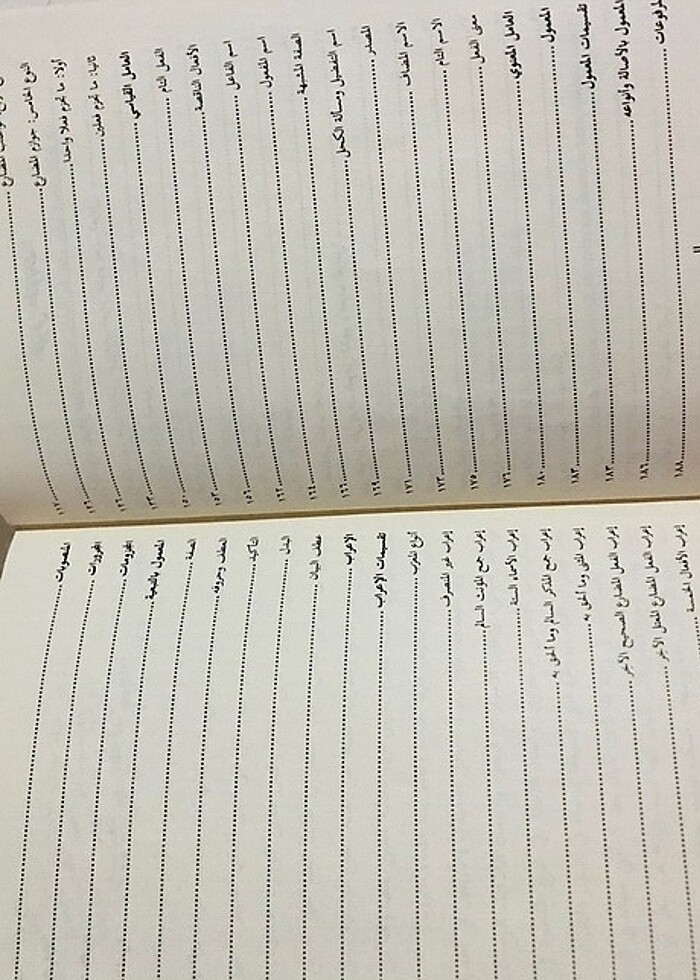 نواصب المضارع ١١٧
النوع الخامس: جوازم المضارع ١٢٩
أولا: ما يجزم فعلا واحدا ١٢٩
ثانيا: ما يجزم فعلين ١٣٣
العامل القياسي ١٥٠
الفعل التام ١٥٣
الأفعال الناقصة ١٥٦
اسم الفاعل ١٦٢
اسم المفعول ١٦٤
الصفة المشبهة ١٦٦
اسم التفضيل ومسألة الكحل ١٦٩
المصدر ١٧١
الاسم المضاف ١٧٣
الاسم التام ١٧٥
معنى الفعل ١٧٦
العامل المعنوي ١٨٠
المعمول ١٨٣
تقسيمات المعمول ١٨٣
المعمول بالأصالة وأنواعه ١٨٦
المرفوعات ١٨٨
المنصوبات
المجرورات
المجزومات
المعمول بالتبعية
الصفة
العطف وحروفه
التأكيد
البدل
عطف البيان
الإعراب
تقسيمات الإعراب
أنواع المعرب
إعراب غير المنصرف
إعراب جمع المؤنث السالم
إعراب الأسماء الستة
إعراب جمع المذكر السالم وما ألحق به
إعراب المثنى وما ألحق به
إعراب الفعل المضارع الصحيح الآخر
إعراب الفعل المضارع المعتل الآخر
إعراب الأفعال الخمسة